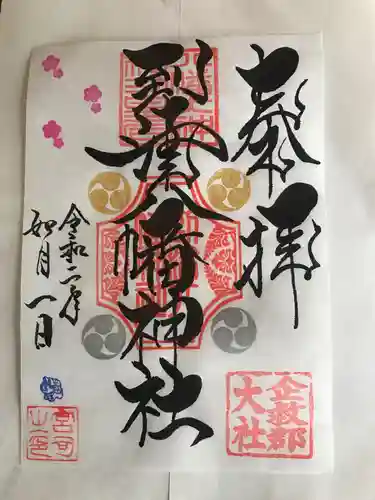 奉拝
到津八幡神社
令和二年
如月一日
企救郡
大社
宮司
之印